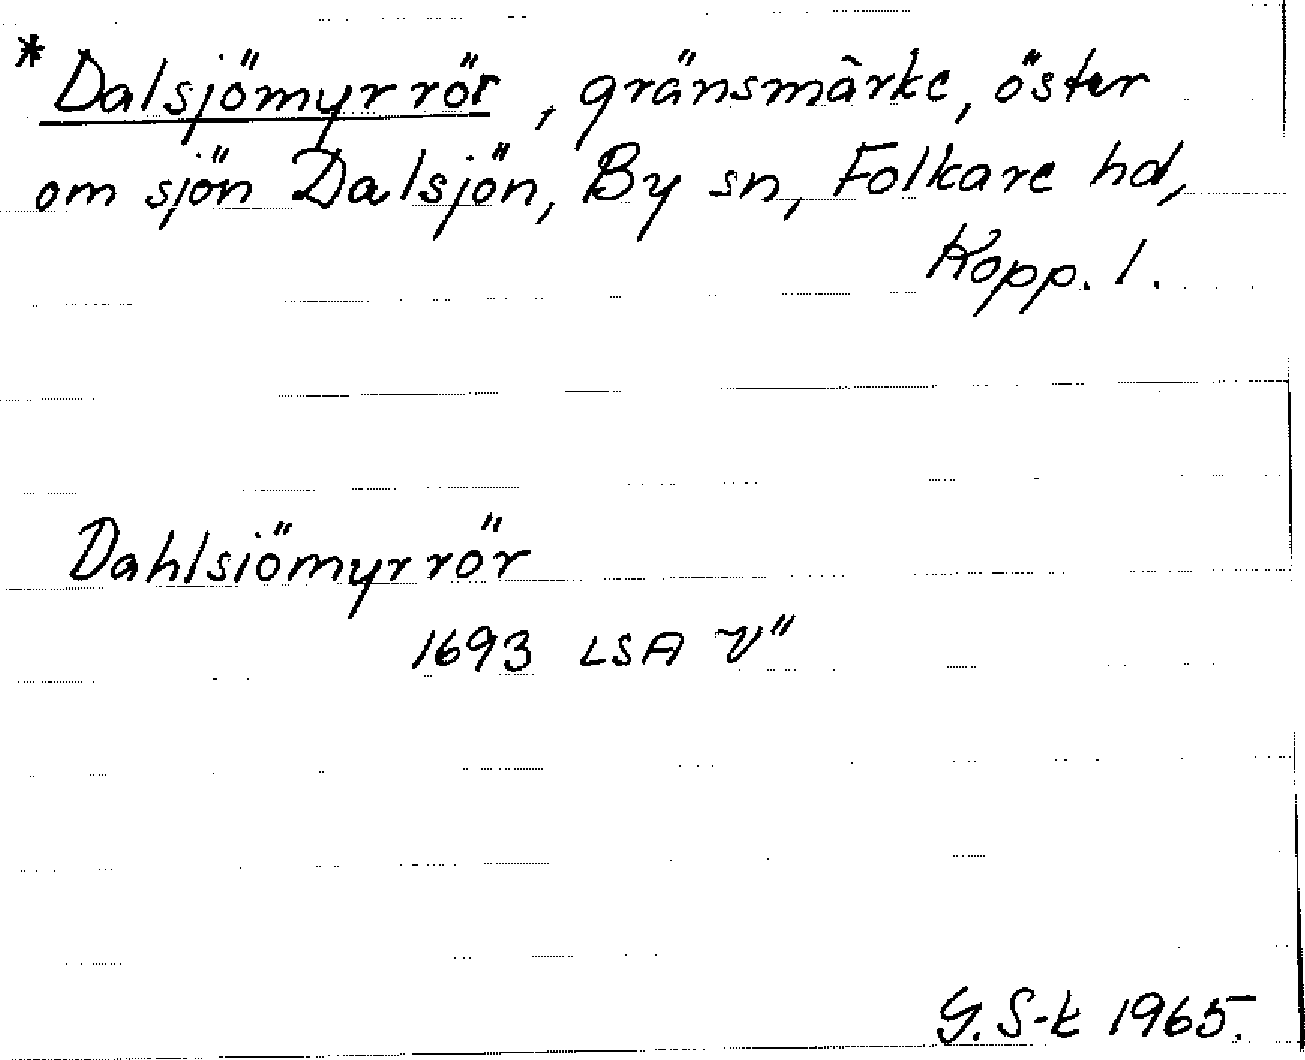 * Dalsjömyrrör, gränsmärke, öster
om sjön Dalsjön, By sn, Folkare hd,
Kopp. l.
Dahlsiömyrrör
1693 LSA V"
G. S-k 1965.